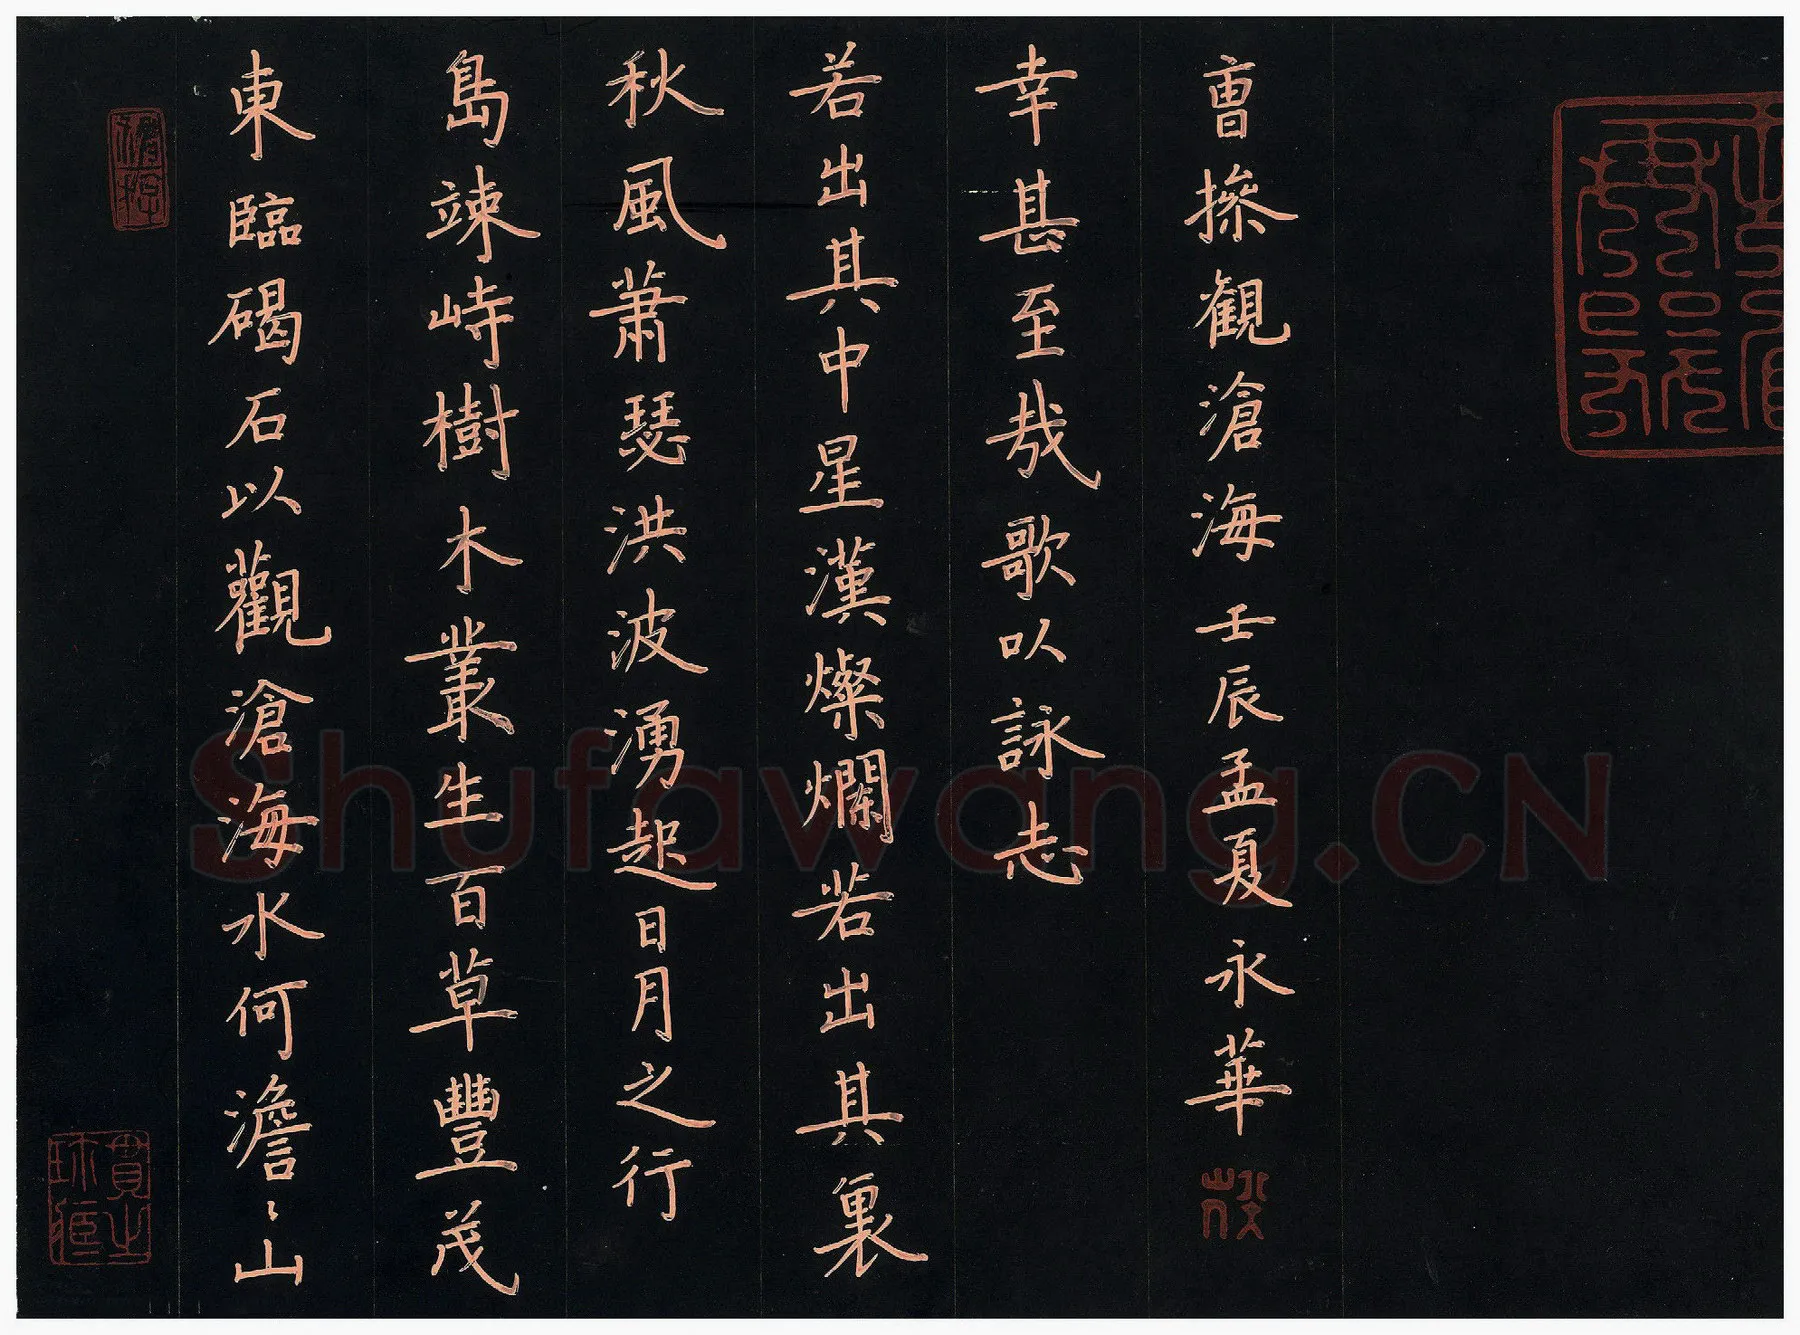 東臨碣石以觀滄海水何澹〻山
島竦峙樹木叢生百草豐茂
秋風蕭瑟洪波湧起日月之行
若出其中星漢燦爛若出其裏
幸甚至哉歌以詠志
曺操観滄海壬辰孟夏永華
Shufawang.CN